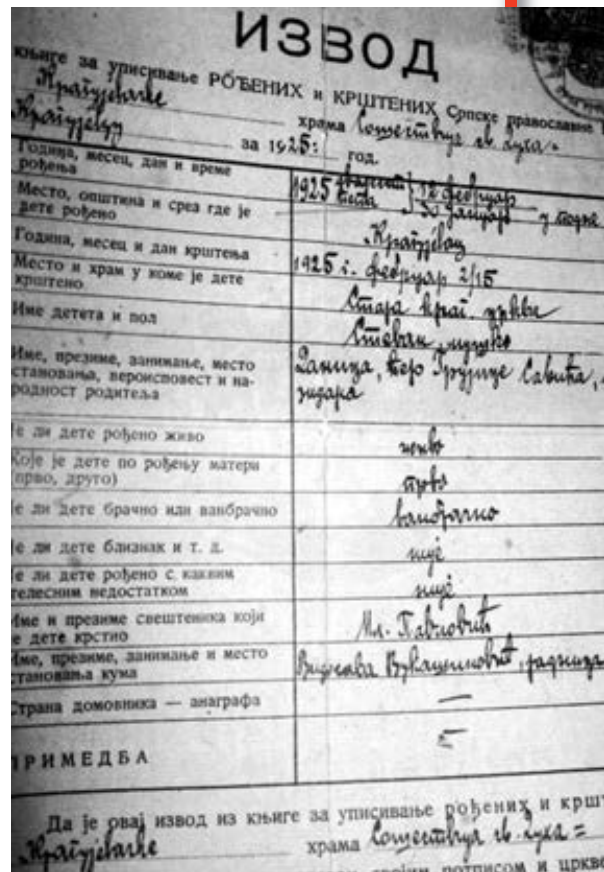 ИЗВОД
књиге за уписивање РОЂЕНИХ и КРШТЕНИХ Српске православне
Крагујевачке храма Сошествија св. Духа =
Крагујевцу за 1925: год.
Година, месец, дан и време рођења
1925 двадесет пета 12 фебруар 30 јануар у подне
Место, општина и срез где је дете рођено
Крагујевац
Година, месец и дан крштења
1925 г. фебруар 2/15
Место и храм у коме је дете крштено
Стара краг. црква
Име детета и пол
Стеван, мушко
Име, презиме, занимање, место становања, вероисповест и на-
родност родитеља
Даница, кћер Грујице Савића,
зидара
Је ли дете рођено живо
живо
Које је дете по рођењу матери
(прво, друго)
прво
Је ли дете брачно или ванбрачно
ванбрачно
Је ли дете близнак и т. д.
није
Је ли дете рођено с каквим
телесним недостатком
није
Име и презиме свештеника који
је дете крстио
Мл. Павловић
Име, презиме, занимање и место
становања кума
Видосава Вукашиновић, радница
Страна домовника — анаграфа
—
ПРИМЕДБА
—
Да је овај извод из књиге за уписивање рођених и кршт
Крагујевачке храма Сошествија св. Духа =
својим потписом и цркве